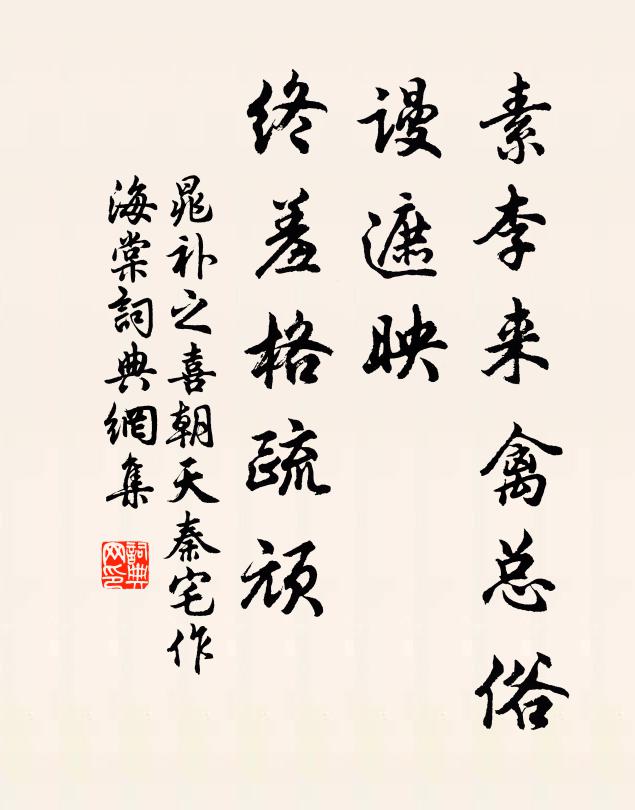 素李来禽总俗
谩遮映
终羞格疏顽
晁补之喜朝天秦宅作
海棠詞典網集
詞典网印